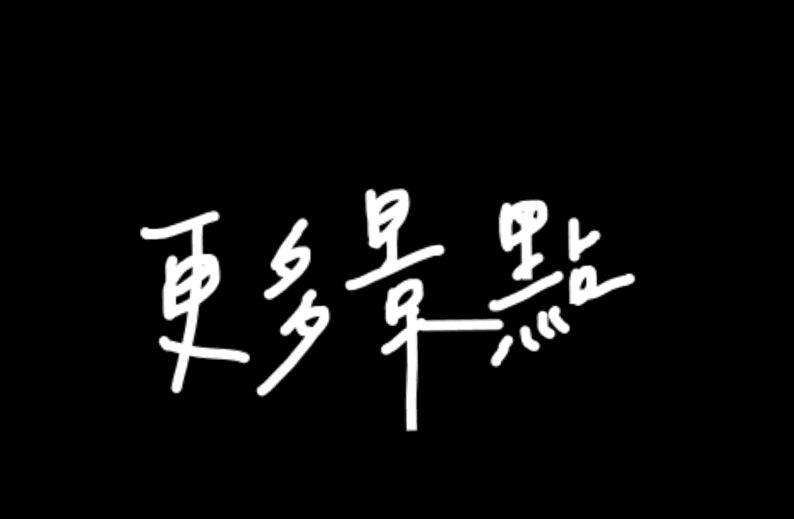 更多景點